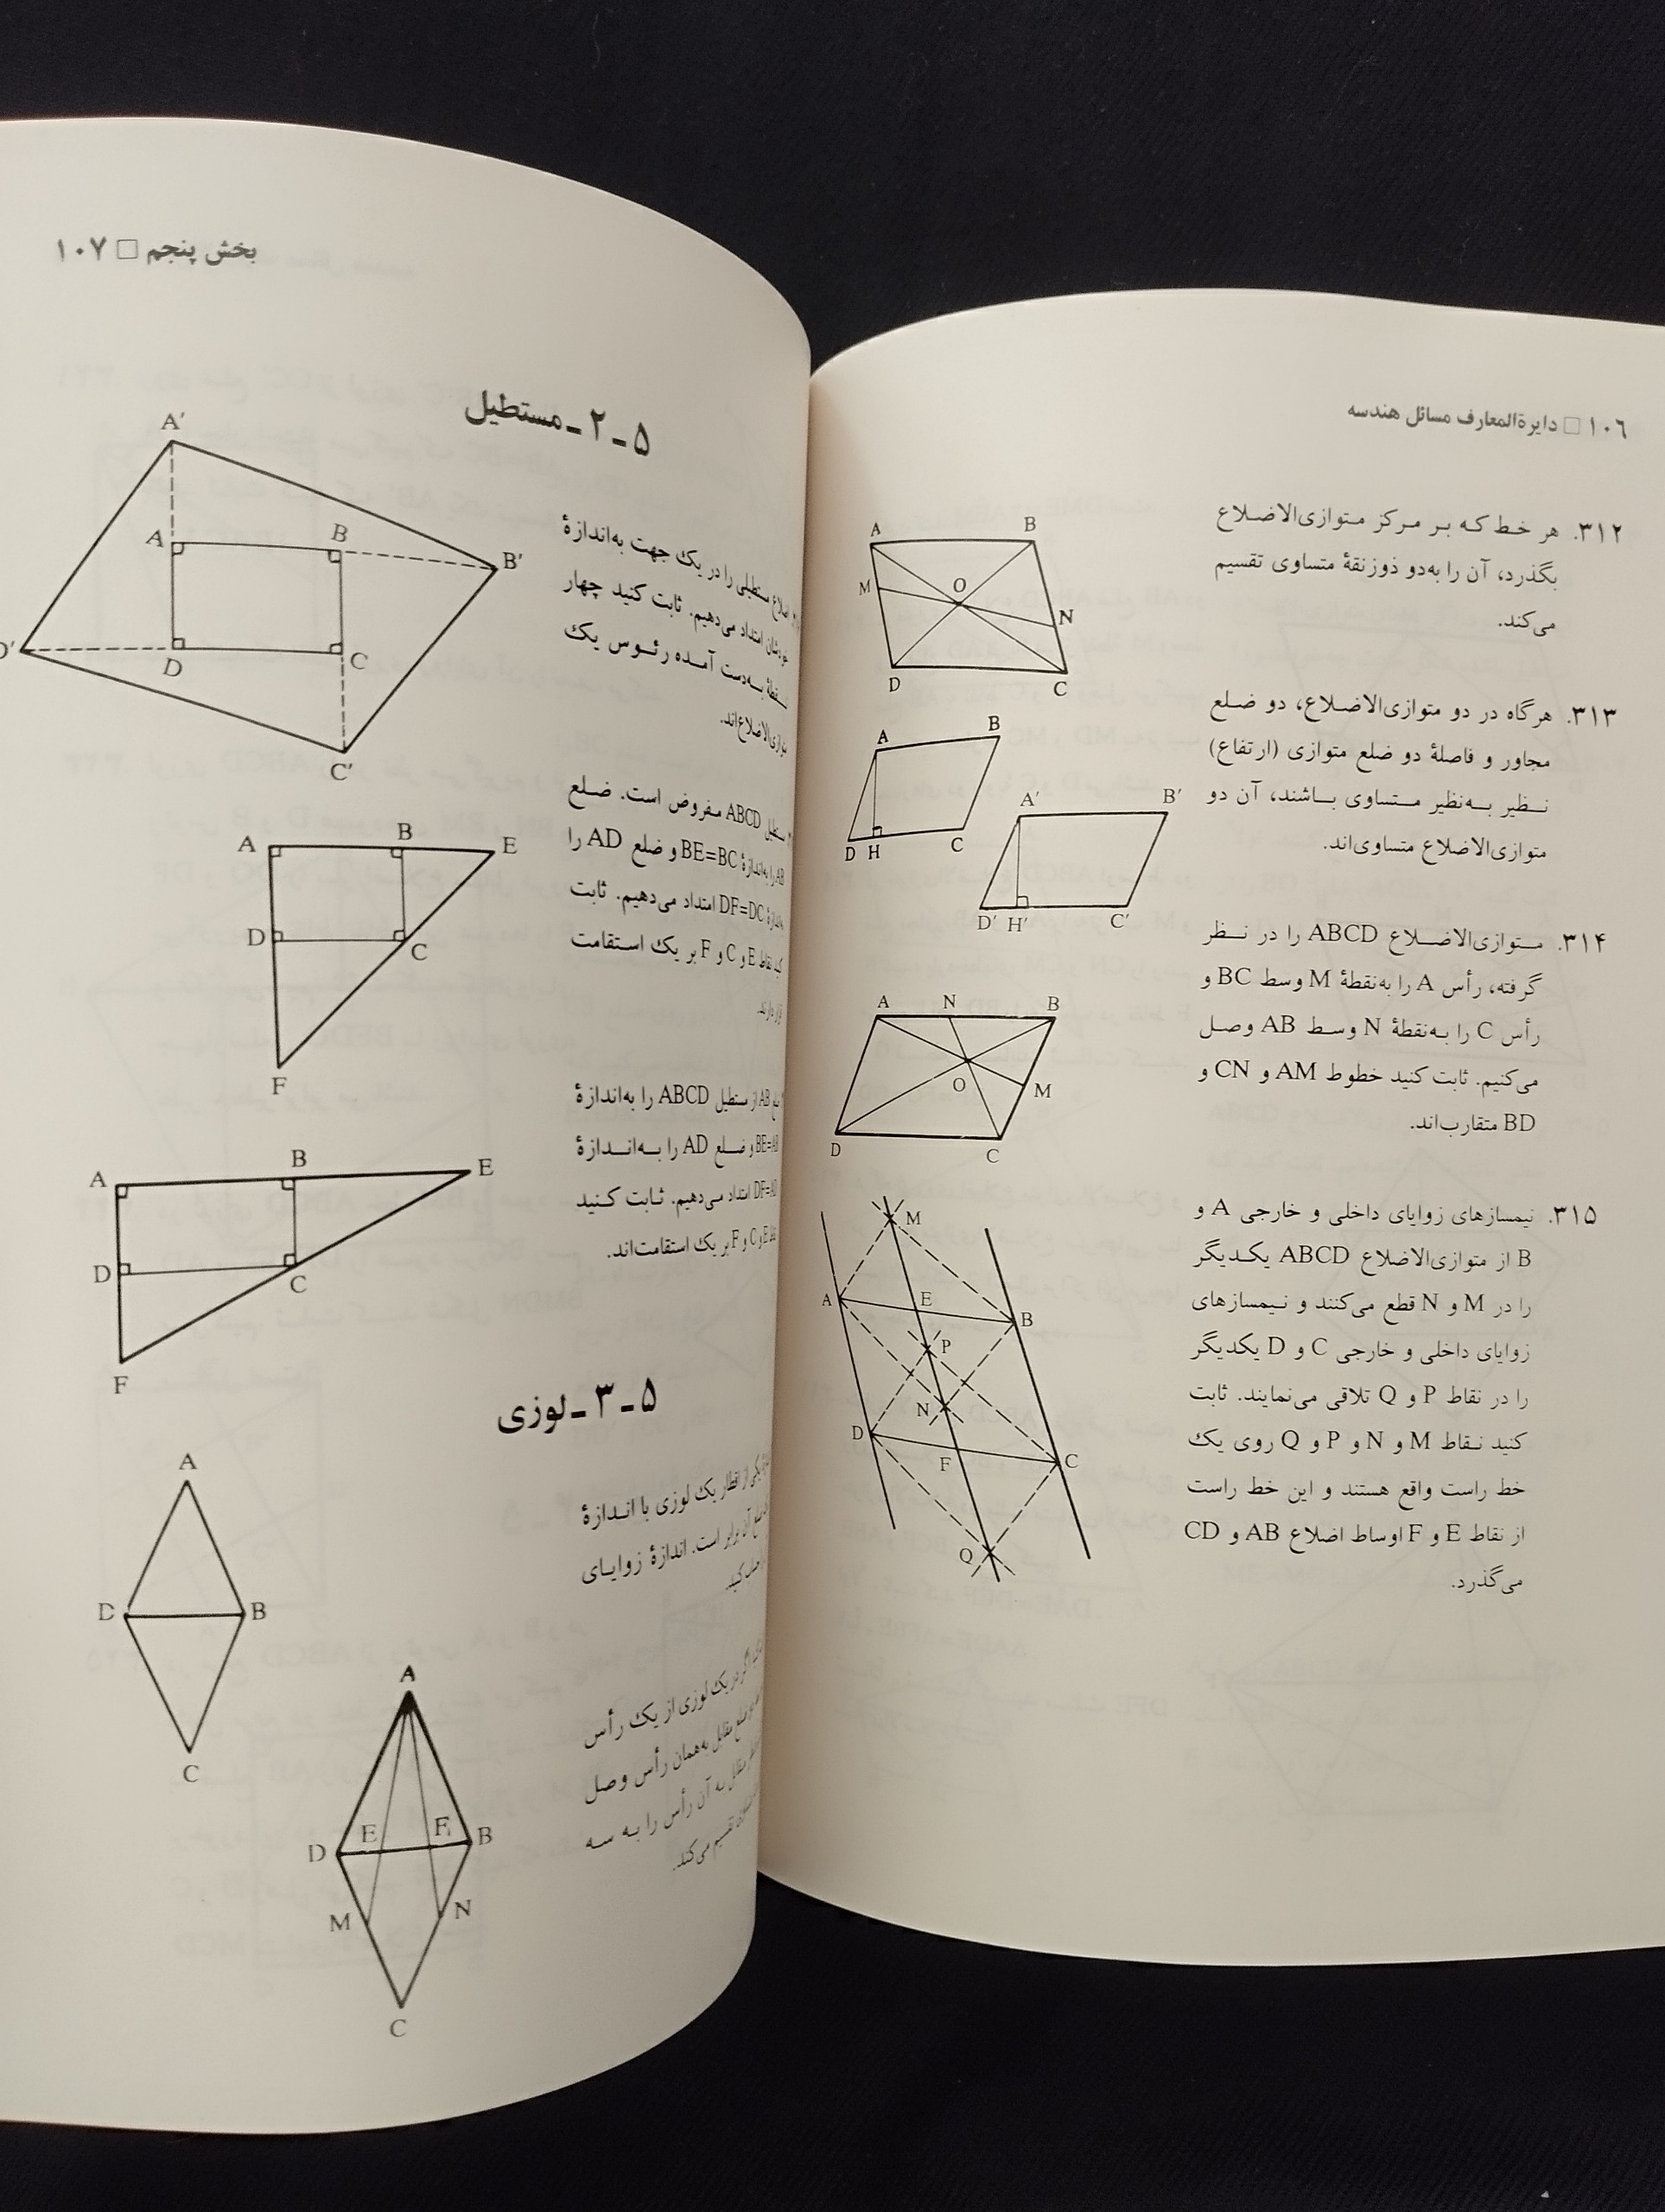 ۱۰۶ □ دایرةالمعارف مسائل هندسه
۳۱۲. هر خط که بر مرکز متوازی‌الاضلاع
بگذرد، آن را به‌دو ذوزنقهٔ متساوی تقسیم
می‌کند.
A B
M O N
D C
۳۱۳. هرگاه در دو متوازی‌الاضلاع، دو ضلع
مجاور و فاصلهٔ دو ضلع متوازی (ارتفاع)
نظیر به‌نظیر متساوی باشند، آن دو
متوازی‌الاضلاع متساوی‌اند.
A B
D H C
A' B'
D' H' C'
۳۱۴. متوازی‌الاضلاع ABCD را در نظر
گرفته، رأس A را به‌نقطهٔ M وسط BC و
رأس C را به‌نقطهٔ N وسط AB وصل
می‌کنیم. ثابت کنید خطوط AM و CN و
BD متقارب‌اند.
A N B
O M
D C
۳۱۵. نیمسازهای زوایای داخلی و خارجی A و
B از متوازی‌الاضلاع ABCD یکدیگر
را در M و N قطع می‌کنند و نیمسازهای
زوایای داخلی و خارجی C و D یکدیگر
را در نقاط P و Q تلاقی می‌نمایند. ثابت
کنید نقاط M و N و P و Q روی یک
خط راست واقع هستند و این خط راست
از نقاط E و F اوساط اضلاع AB و CD
می‌گذرد.
M
A E B
P
N
D F C
Q
بخش پنجم □ ۱۰۷
۵ـ۲ـ مستطیل
اضلاع مستطیلی را در یک جهت به‌اندازهٔ
خودشان امتداد می‌دهیم. ثابت کنید چهار
نقطهٔ به‌دست آمده رئوس یک
متوازی‌الاضلاع‌اند.
A'
A B B'
D' D C
C'
مستطیل ABCD مفروض است. ضلع
AB را به‌اندازهٔ BE=BC و ضلع AD را
به‌اندازهٔ DF=DC امتداد می‌دهیم. ثابت
کنید نقاط E و C و F بر یک استقامت
قرار دارند.
A B E
D C
F
ضلع AB از مستطیل ABCD را به‌اندازهٔ
BE=AB و ضلع AD را به‌اندازهٔ
DF=AD امتداد می‌دهیم. ثابت کنید
نقاط E و C و F بر یک استقامت‌اند.
A B E
D C
F
۵ـ۳ـ لوزی
یکی از اقطار یک لوزی با اندازهٔ
ضلع آن برابر است. اندازهٔ زوایای
کنید.
A
D B
C
اگر در یک لوزی از یک رأس
ضلع مقابل به‌همان رأس وصل
مقابل به آن رأس را به سه
تقسیم می‌کند.
A
D E F B
M N
C